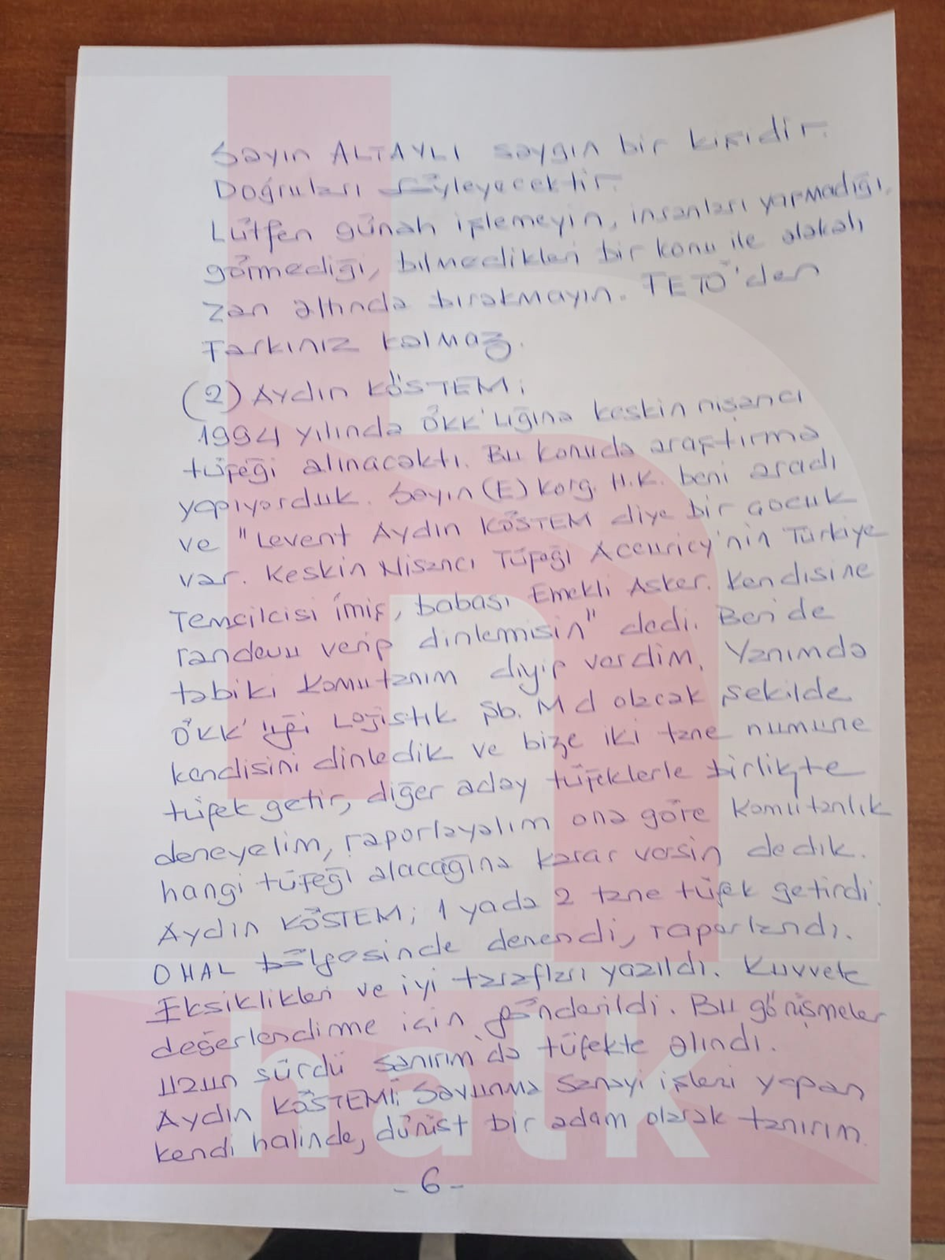 Sayın ALTAYLI saygın bir kişidir.
Doğruları söyleyecektir.
Lütfen günah işlemeyin, insanları yapmadığı,
görmediği, bilmedikleri bir konu ile alakalı
zan altında bırakmayın. FETÖ'den
Farkınız kalmaz.
(2) Aydın KÖSTEM;
1994 yılında ÖKK'lığına keskin nişancı
tüfeği alınacaktı. Bu konuda araştırma
yapıyorduk. Sayın (E) Korg. H.K. beni aradı
ve "Levent Aydın KÖSTEM diye bir çocuk
var. Keskin Nişancı Tüfeği Accuricy'nin Türkiye
Temcilcisi imiş, babası Emekli Asker. Kendisine
randevu verip dinlemisin" dedi. Ben de
tabiki komutanım diyip verdim. Yanımda
ÖKK'lığı Lojistik Şb. Md olacak şekilde
kendisini dinledik ve bize iki tane numune
tüfek getir, diğer aday tüfeklerle birlikte
deneyelim, raporlayalım ona göre Komutanlık
hangi tüfeği alacağına karar versin dedik.
Aydın KÖSTEM; 1 yada 2 tane tüfek getirdi.
OHAL bölgesinde denendi, raporlandı.
Eksiklikleri ve iyi tarafları yazıldı. Kuvvete
değerlendirme için gönderildi. Bu görüşmeler
uzun sürdü sanırım da tüfekte alındı.
Aydın KÖSTEMİ; Savunma Sanayi işleri yapan
kendi halinde, dürüst bir adam olarak tanırım.
- 6 -
halk